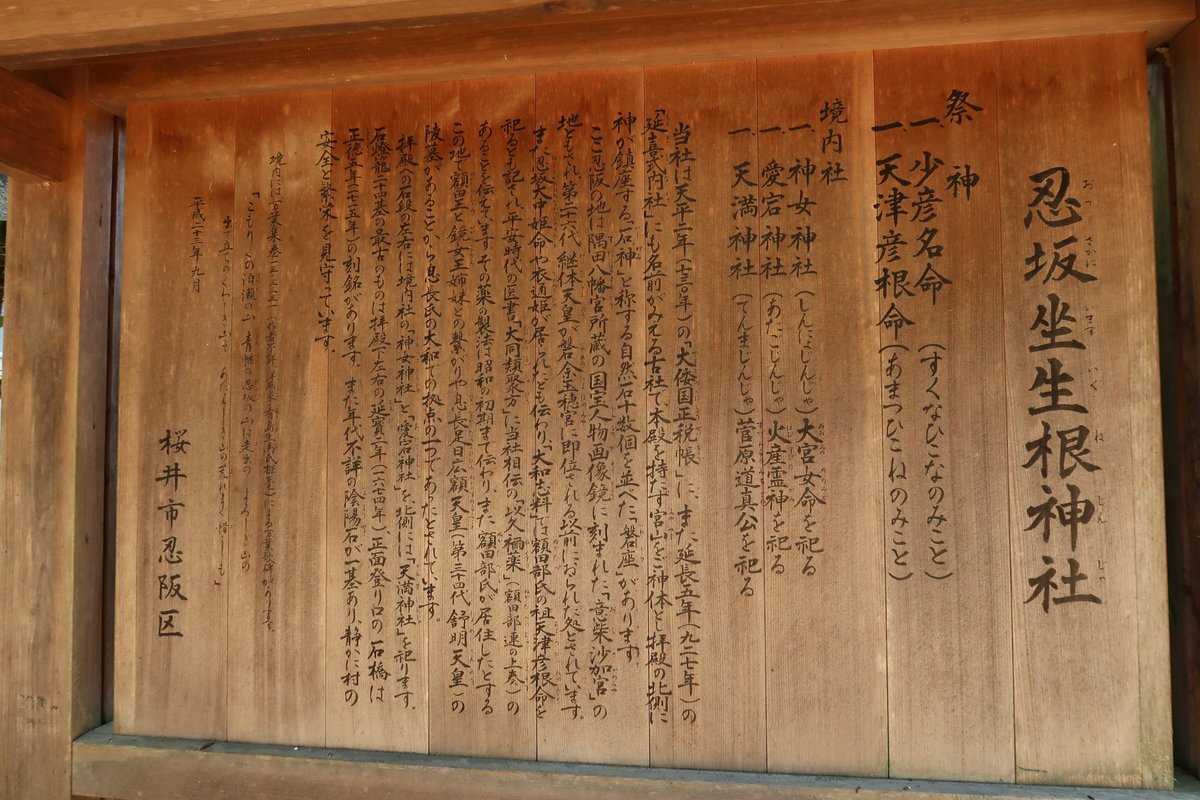 忍坂坐生根神社
おつさかにいますいくねじんじゃ
祭神
一、少彦名命(すくなひこなのみこと)
一、天津彦根命(あまつひこねのみこと)
境内社
一、神女神社(しんにょじんじゃ)大宮女命を祀る
一、愛宕神社(あたごじんじゃ)火産霊神を祀る
一、天満神社(てんまじんじゃ)菅原道真公を祀る
当社は天平二年(七三〇年)の「大倭国正税帳」に、また延長五年(九二七年)の
「延喜式内社」にも名前がみえる古社で、本殿を持たず宮山をご神体とし拝殿の北側に
神が鎮座する「石神」と称する自然石十数個を並べた「磐座」があります。
ここ忍阪の地は隅田八幡宮所蔵の国宝人物画像鏡に刻まれた「意柴沙加宮」の
地ともされ、第二十六代 継体天皇が磐余玉穂宮に即位される以前におられた処とされています。
また忍坂大中姫命や衣通姫が居られたとも伝わり、「大和志料」では額田部氏の祖天津彦根命を
祀るとも記され、平安時代の医書「大同類聚方」に当社相伝の「以久禰薬」(額田部連の上奏)の
あることを伝えてます。その薬の製法は昭和の初期まで伝わり、また額田部氏が居住したとする
この地と額田王と鏡女王姉妹との繋がりや息長足日広額天皇(第三十四代 舒明天皇)の
陵墓があることから息長氏の大和での拠点の一つであったとされています。
拝殿への石段の左右には境内社の「神女神社」と「愛宕神社」を、北側には「天満神社」を祀ります。
石燈籠二十基の最古のものは拝殿下左右の延宝二年(一六七四年)正面登り口の石橋は
正徳五年(一七一五年)の刻銘があります。また年代不詳の陰陽石が一基あり、静かに村の
安全と繁栄を見守っています。
境内には万葉集巻十三-三三三一(作者不詳
有島生馬氏揮毫)による万葉歌碑があります。
「こもりくの泊瀬の山 青幡の忍坂の山は走出の よろしき山の
出立のくはしき山ぞ あたらしき山の荒れまく惜しも」
平成二十三年九月
桜井市忍阪区